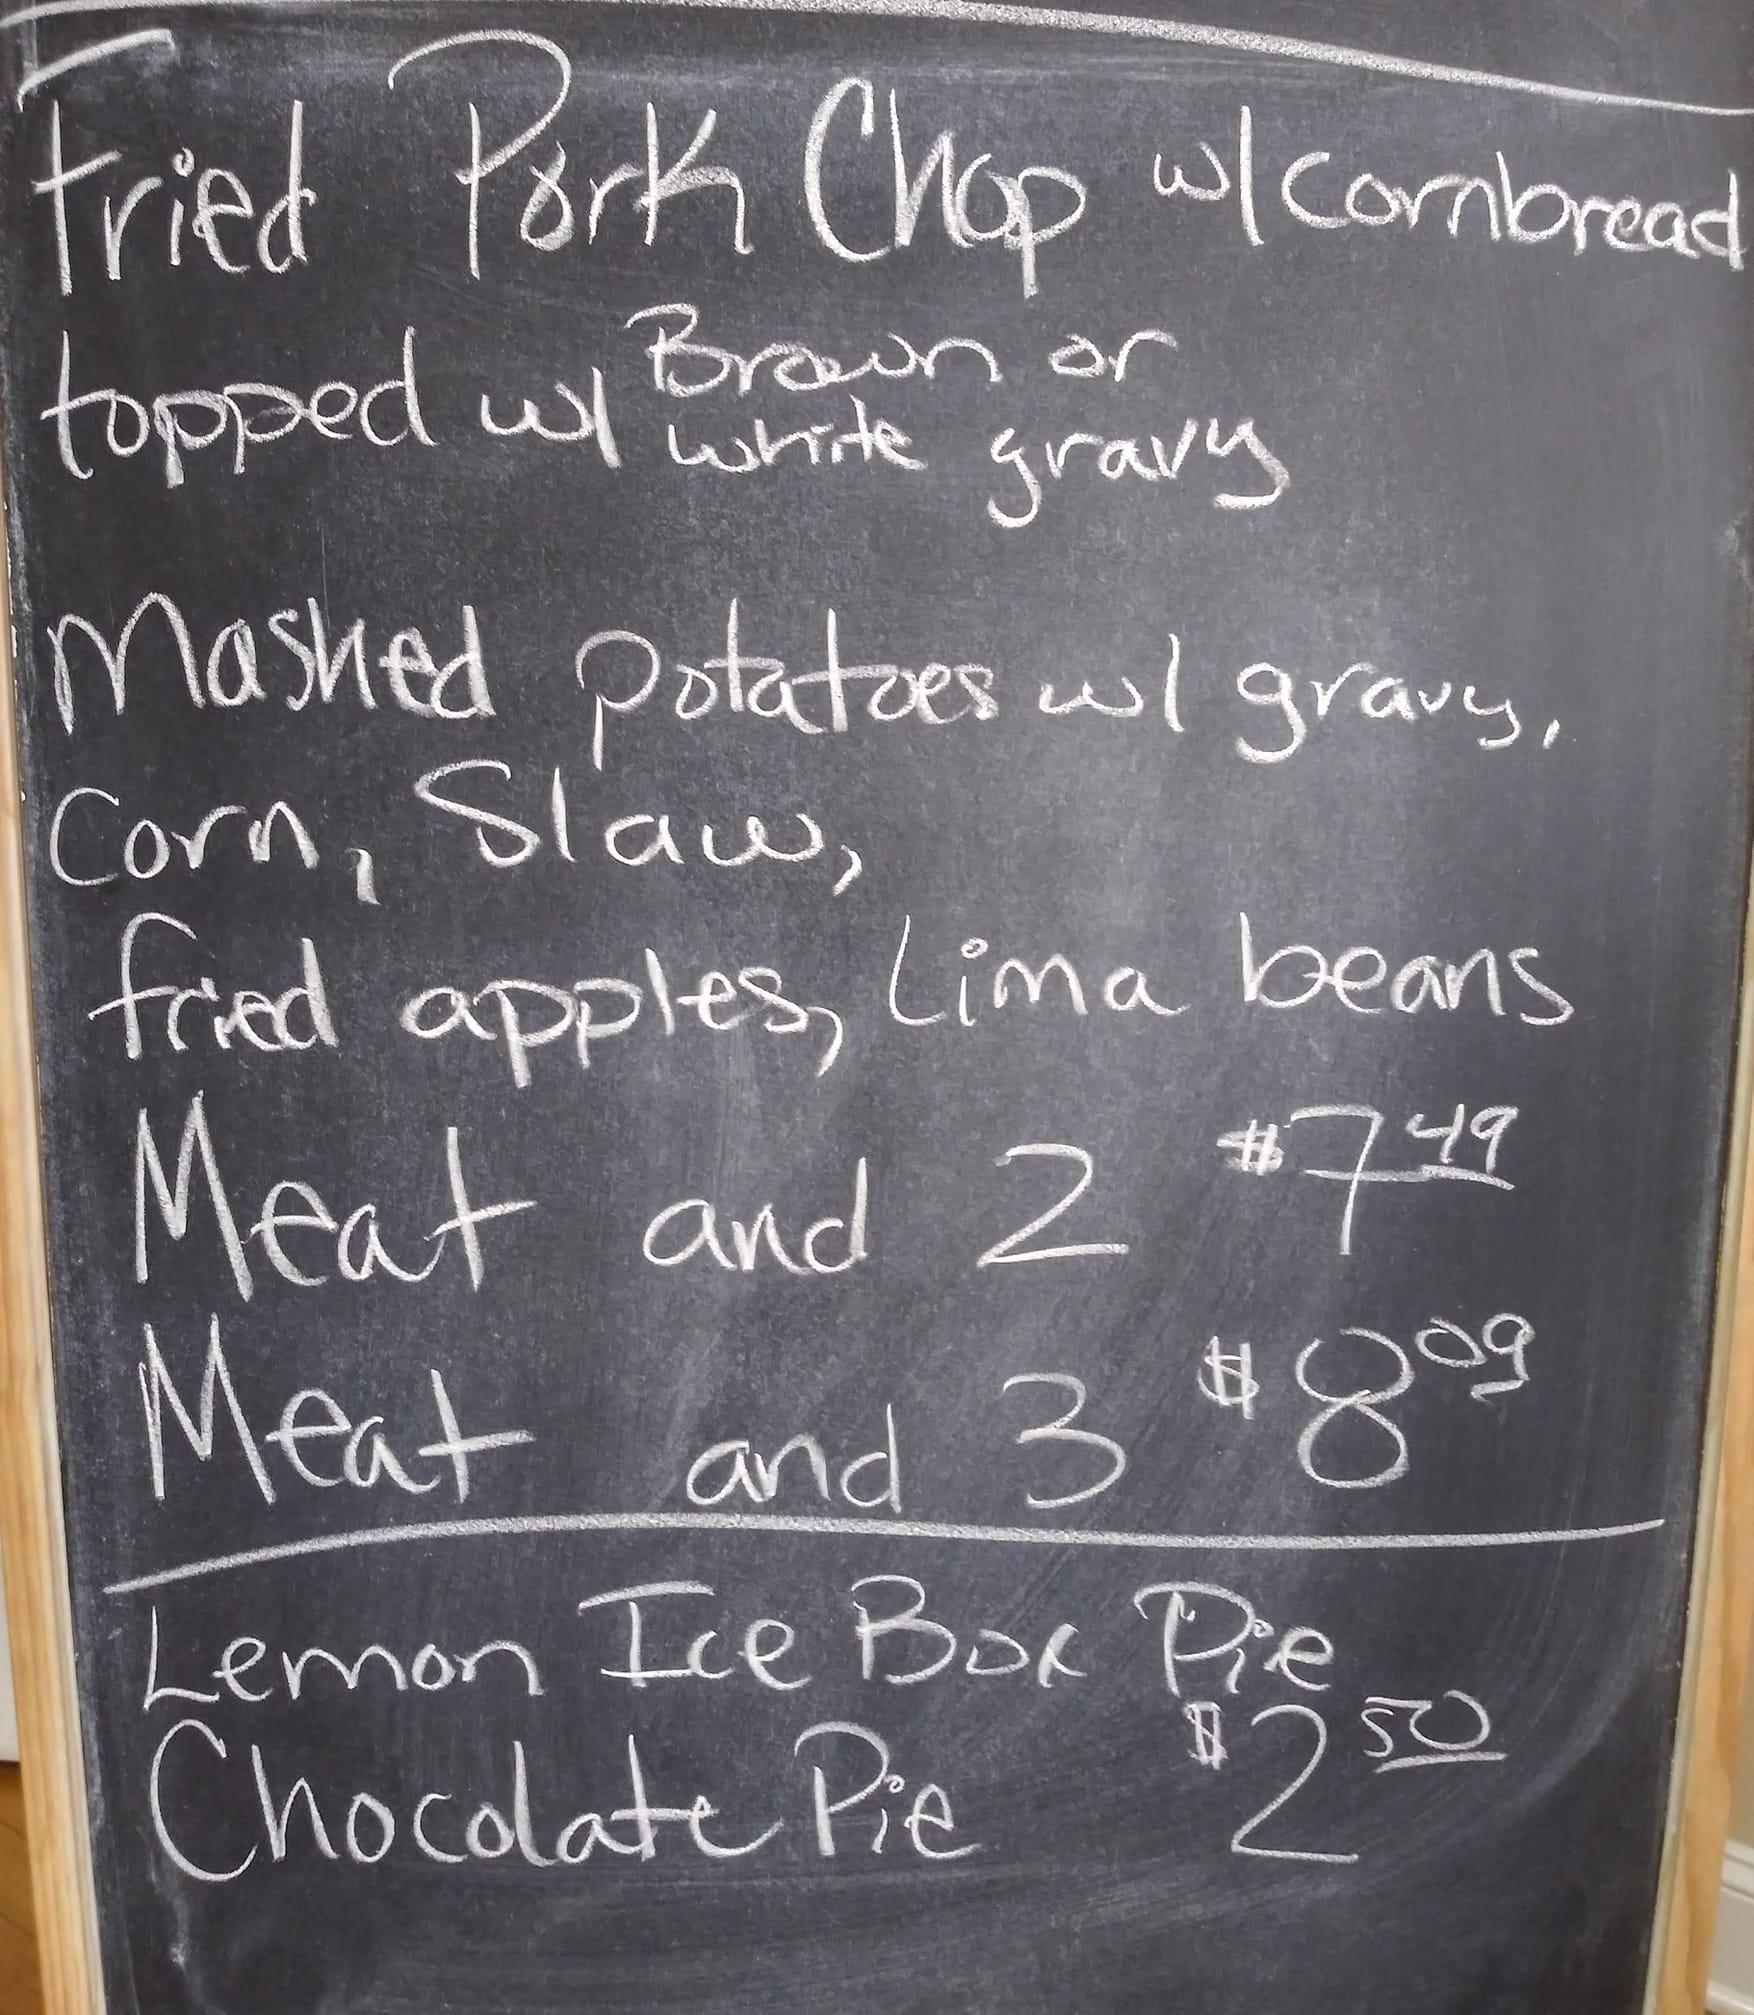 Fried Pork Chop w/ Cornbread
topped w/ Brown or
white gravy
Mashed potatoes w/ gravy,
Corn, Slaw,
fried apples, Lima beans
Meat and 2 $7.49
Meat and 3 $8.09
Lemon Ice Box Pie
Chocolate Pie $2.50